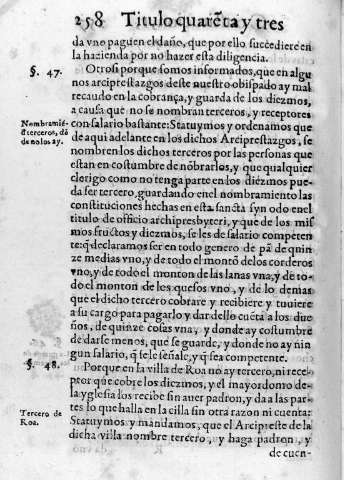 258 Titulo quarēta y tres
da vno paguen el daño, que por ello succediere en
la hazienda por no hazer esta diligencia.
§. 47.
Otrosi porque somos informados, que en algu
nos arciprestazgos deste nuestro obispado ay mal
recaudo en la cobrança, y guarda de los diezmos,
a causa que no se nombran terceros, y receptores
Nombramiē
d terceros, dō
de no los ay.
con salario bastante: Statuymos y ordenamos que
de aqui adelante en los dichos Arciprestazgos, se
nombren los dichos terceros por las personas que
estan en costumbre de nōbrarlos, y que qualquier
clerigo como no tenga parte en los diezmos pue-
da ser tercero, guardando en el nombramiento las
constituciones hechas en esta sancta synodo en el
titulo de officio archipresbyteri, y que de los mis
mos fructos y diezmos, se les de salario competen
te: q̃ declaramos ser en todo genero de pā de quin
ze medias vno, y de todo el montō de los corderos
vno, y de todo el monton de las lanas vna, y de to-
do el monton de los quesos vno, y de lo demas
que el dicho tercero cobrare y recibiere y tuuiere
a su cargo para pagarlo y dar dello cuēta a los due
ños, de quinze cosas vna, y donde ay costumbre
de darse menos, que se guarde, y donde no ay nin
gun salario, q̃ se le señale, y q̃ sea competente.
§. 48.
Porque en la villa de Roa no ay tercero, ni rece-
ptor que cobre los diezmos, y el mayordomo de
la yglesia los recibe sin auer padron, y da a las par-
tes lo que halla en la cilla sin otra razon ni cuenta:
Tercero de
Roa.
Statuymos y mandamos, que el Arcipreste de la
dicha villa nombre tercero, y haga padron, y
de cuen-